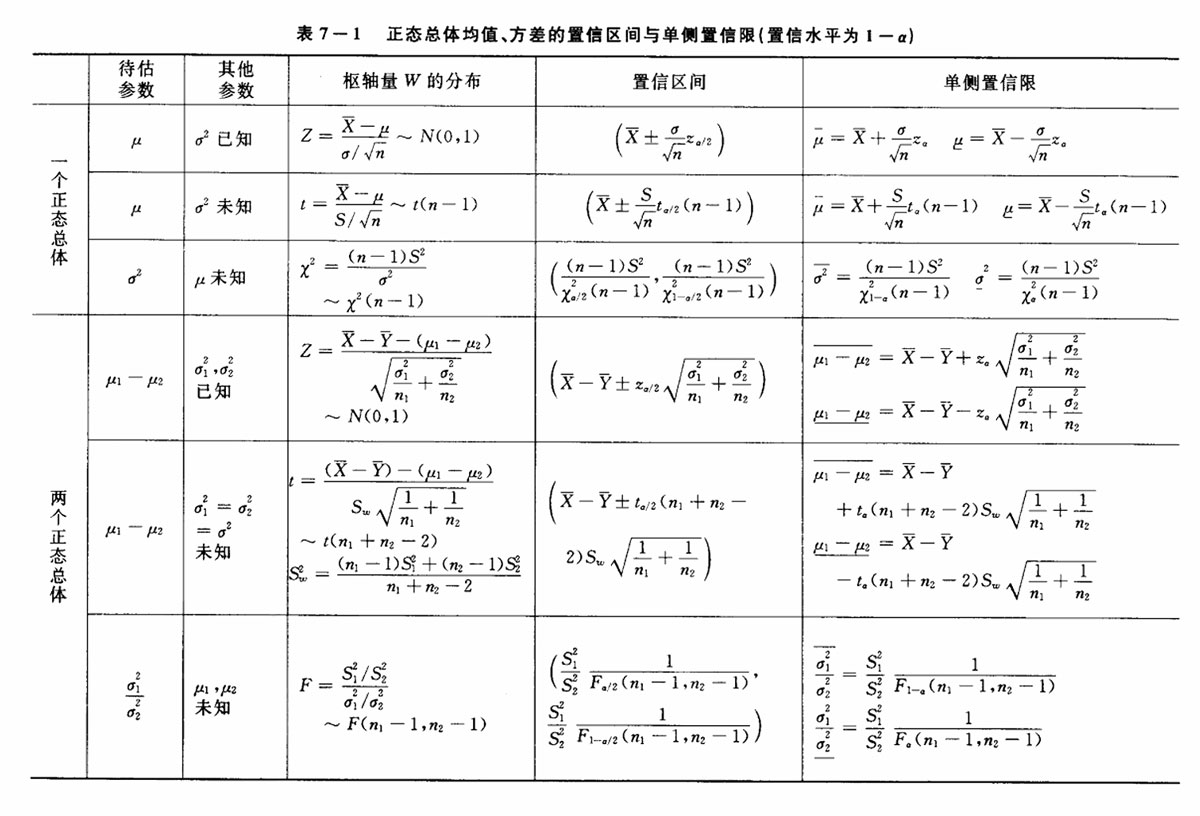 表7-1 正态总体均值、方差的置信区间与单侧置信限(置信水平为1-α)
待估参数 其他参数 枢轴量W的分布 置信区间 单侧置信限
一个正态总体
μ σ² 已知 Z = (X̄-μ)/(σ/√n) ~ N(0,1) (X̄ ± σ/√n z_{α/2}) μ̄ = X̄ + σ/√n z_α μ̲ = X̄ - σ/√n z_α
μ σ² 未知 t = (X̄-μ)/(S/√n) ~ t(n-1) (X̄ ± S/√n t_{α/2}(n-1)) μ̄ = X̄ + S/√n t_α(n-1) μ̲ = X̄ - S/√n t_α(n-1)
σ² μ未知 χ² = (n-1)S²/σ² ~ χ²(n-1) ((n-1)S²/χ²_{α/2}(n-1), (n-1)S²/χ²_{1-α/2}(n-1)) σ̄² = (n-1)S²/χ²_{1-α}(n-1) σ̲² = (n-1)S²/χ²_α(n-1)
两个正态总体
μ₁-μ₂ σ₁²,σ₂² 已知 Z = (X̄-Ȳ-(μ₁-μ₂))/√(σ₁²/n₁ + σ₂²/n₂) ~ N(0,1) (X̄-Ȳ ± z_{α/2}√(σ₁²/n₁ + σ₂²/n₂)) \overline{μ₁-μ₂} = X̄-Ȳ+z_α√(σ₁²/n₁ + σ₂²/n₂)
\underline{μ₁-μ₂} = X̄-Ȳ-z_α√(σ₁²/n₁ + σ₂²/n₂)
μ₁-μ₂ σ₁² = σ₂² = σ² 未知 t = ((X̄-Ȳ)-(μ₁-μ₂))/(S_w√(1/n₁ + 1/n₂)) ~ t(n₁+n₂-2) S_w² = ((n₁-1)S₁²+(n₂-1)S₂²)/(n₁+n₂-2) (X̄-Ȳ ± t_{α/2}(n₁+n₂-2)S_w√(1/n₁ + 1/n₂)) \overline{μ₁-μ₂} = X̄-Ȳ + t_α(n₁+n₂-2)S_w√(1/n₁ + 1/n₂)
\underline{μ₁-μ₂} = X̄-Ȳ - t_α(n₁+n₂-2)S_w√(1/n₁ + 1/n₂)
σ₁²/σ₂² μ₁,μ₂ 未知 F = (S₁²/S₂²)/(σ₁²/σ₂²) ~ F(n₁-1,n₂-1) (S₁²/S₂² 1/F_{α/2}(n₁-1,n₂-1), S₁²/S₂² 1/F_{1-α/2}(n₁-1,n₂-1)) \overline{σ₁²/σ₂²} = S₁²/S₂² 1/F_{1-α}(n₁-1,n₂-1)
\underline{σ₁²/σ₂²} = S₁²/S₂² 1/F_α(n₁-1,n₂-1)